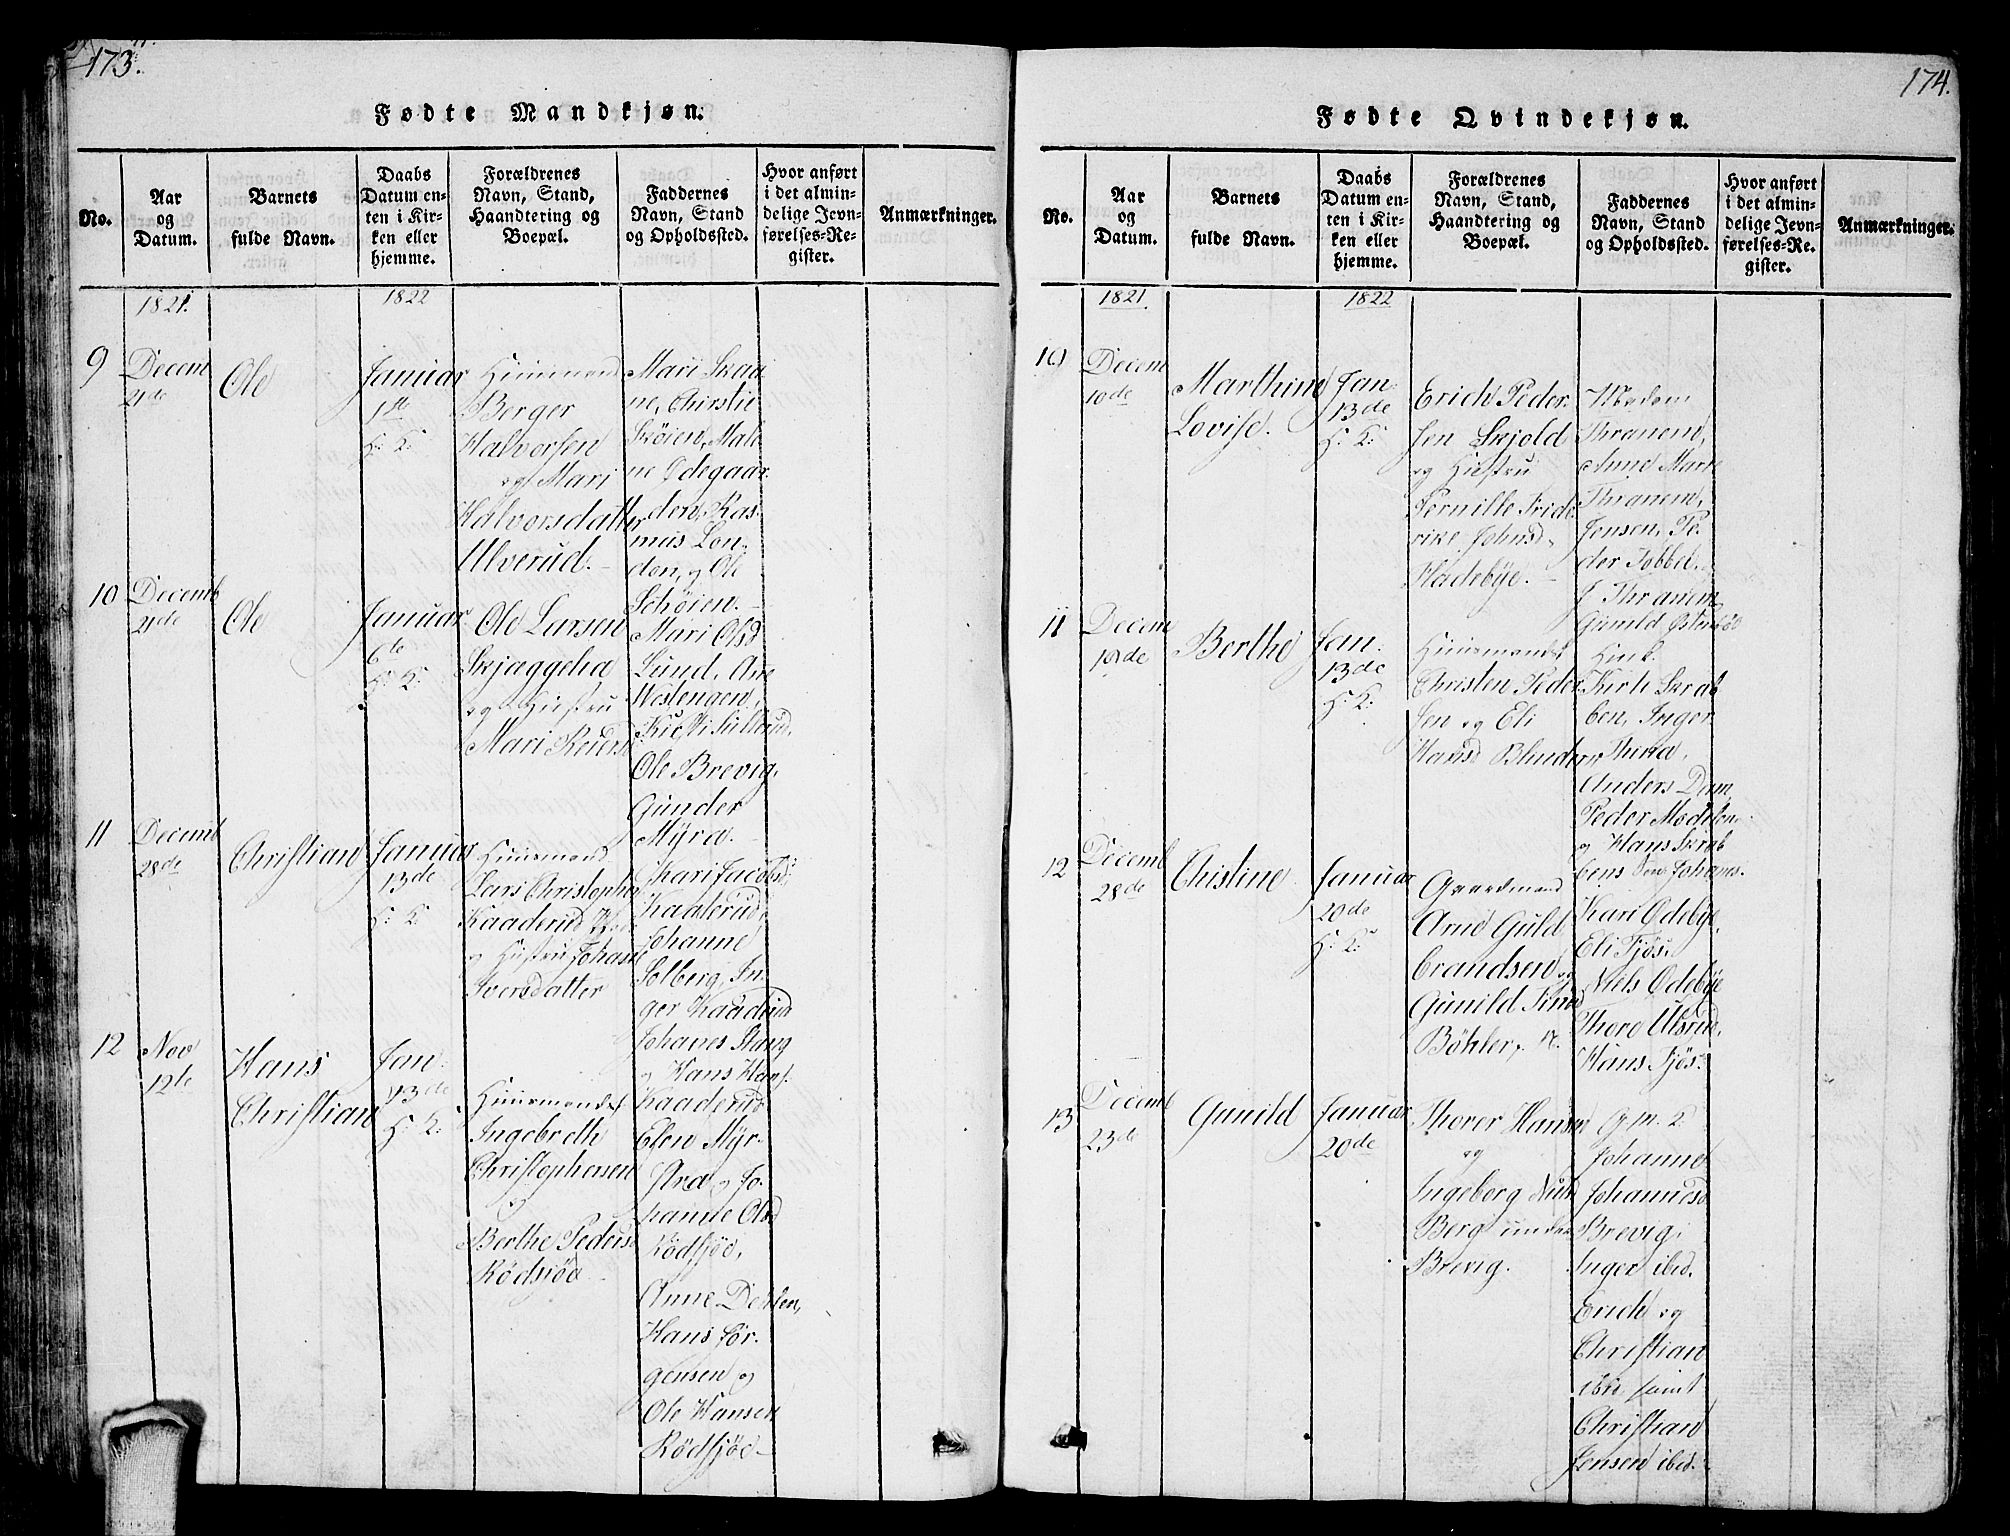 173.
Fødte Mandkjøn.
No.
Aar
og
Datum.
Barnets
fulde Navn.
Daabs
Datum en-
ten i Kir-
ken eller
hjemme.
Forældrenes
Navn, Stand,
Haandtering og
Boepæl.
Faddernes
Navn, Stand
og Opholdssted.
Hvor anført
i det almin-
delige Jevn-
førelses-Re-
gister.
Anmærkninger.
1821.
1822
9
Decem
21de
Ole
Januar
1te
H: K:
Huusmand
Berger
Halvorsen
og Mari
Halvorsdatter
Ulverud.
Mari Skaa
ne, Chirstie
Skøien, Male
ne Ødegaar
den, Ras-
mus Lon-
don, og Ole
Schøien.
10
Decemb
21de
Ole
Januar
6te
H: K:
Ole Larsen
Skjæggeha
og Hustru
Mari Reiers
Mari Olsd
Lund, Ane
Westengen,
Ole Brevig,
Gunder
Myra.
11
Decemb
28de
Christian
Januar
13de
H: K:
Huusmand
Lars Christopher
Kaaderud
og Hustru Johane
Iversdatter
Kari Jacobsd
Kaaterud,
Johanne
Solberg, In-
ger Kaaderud
Johanes Stang
og Hans Hans.
Kaaderud
12
Nov
12te
Hans
Christian
Jan:
13de
H: K:
Huusmand
Ingebreth
Christophersen
og
Berthe Peders
Rødsjøe
Elen Myr-
stra og Jo-
hanne Olsd
Rødsjøe,
Anne Dehlen,
Hans Jør-
gensen og
Ole Hansen
Rødsjøe
174.
Fødte Qvindekjøn.
No.
Aar
og
Datum.
Barnets
fulde Navn.
Daabs
Datum en-
ten i Kir-
ken eller
hjemme.
Forældrenes
Navn, Stand,
Haandtering og
Boepæl.
Faddernes
Navn, Stand
og Opholdssted.
Hvor anført
i det almin-
delige Jevn-
førelses-Re-
gister.
Anmærkninger.
1821.
1822
10
Decem
10de
Marthine
Lovise.
Jan:
13de
H: K:
Erich Peder-
sen Skjold
og Hustru
Pernille Fride-
rike Johnsd
Hadebye.
Madam
Thranem,
Anne Marie
Thranem,
Jensen, Pe-
der Tobbel.
J Thranem
11
Decem
19de
Berthe
Jan:
13de
H: K:
Huusmand
Christen Peder
sen og Eli
Hansd Blindern
Gunild
Kirti Skrab
ben, Inger
Thera,
Anders
Peder
og Hans Skrab
bens Søn Johanes.
12
Decemb
28de
Chistine
Januar
20de
H: K:
Gaardmand
Arne Guld
brandsen og
Gunild
Bøhler,
Kari Odebye,
Eli Fjøs,
Niels Odebye
Thore Ulsrud,
Hans Fjøs:
13
Decemb
23de
Gunild
Januar
20de
Thorer Hansen
og
Ingeborg
Berg under
Brevig.
Johanne
Johannesd
Brevig,
Inger ibid.
Erich og
Christian
ibid samt
Christian
Jensen ibid.